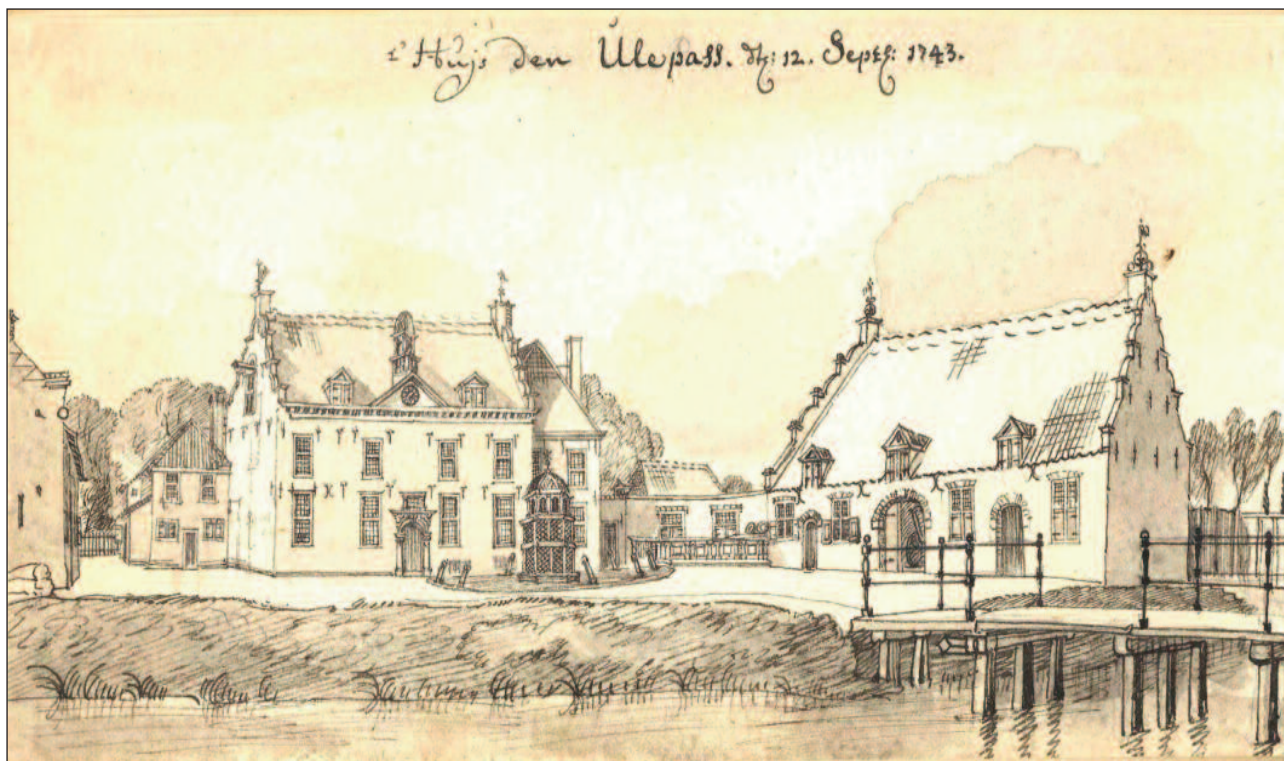 t' Huijs den Ulepass. 12. Septr: 1743.